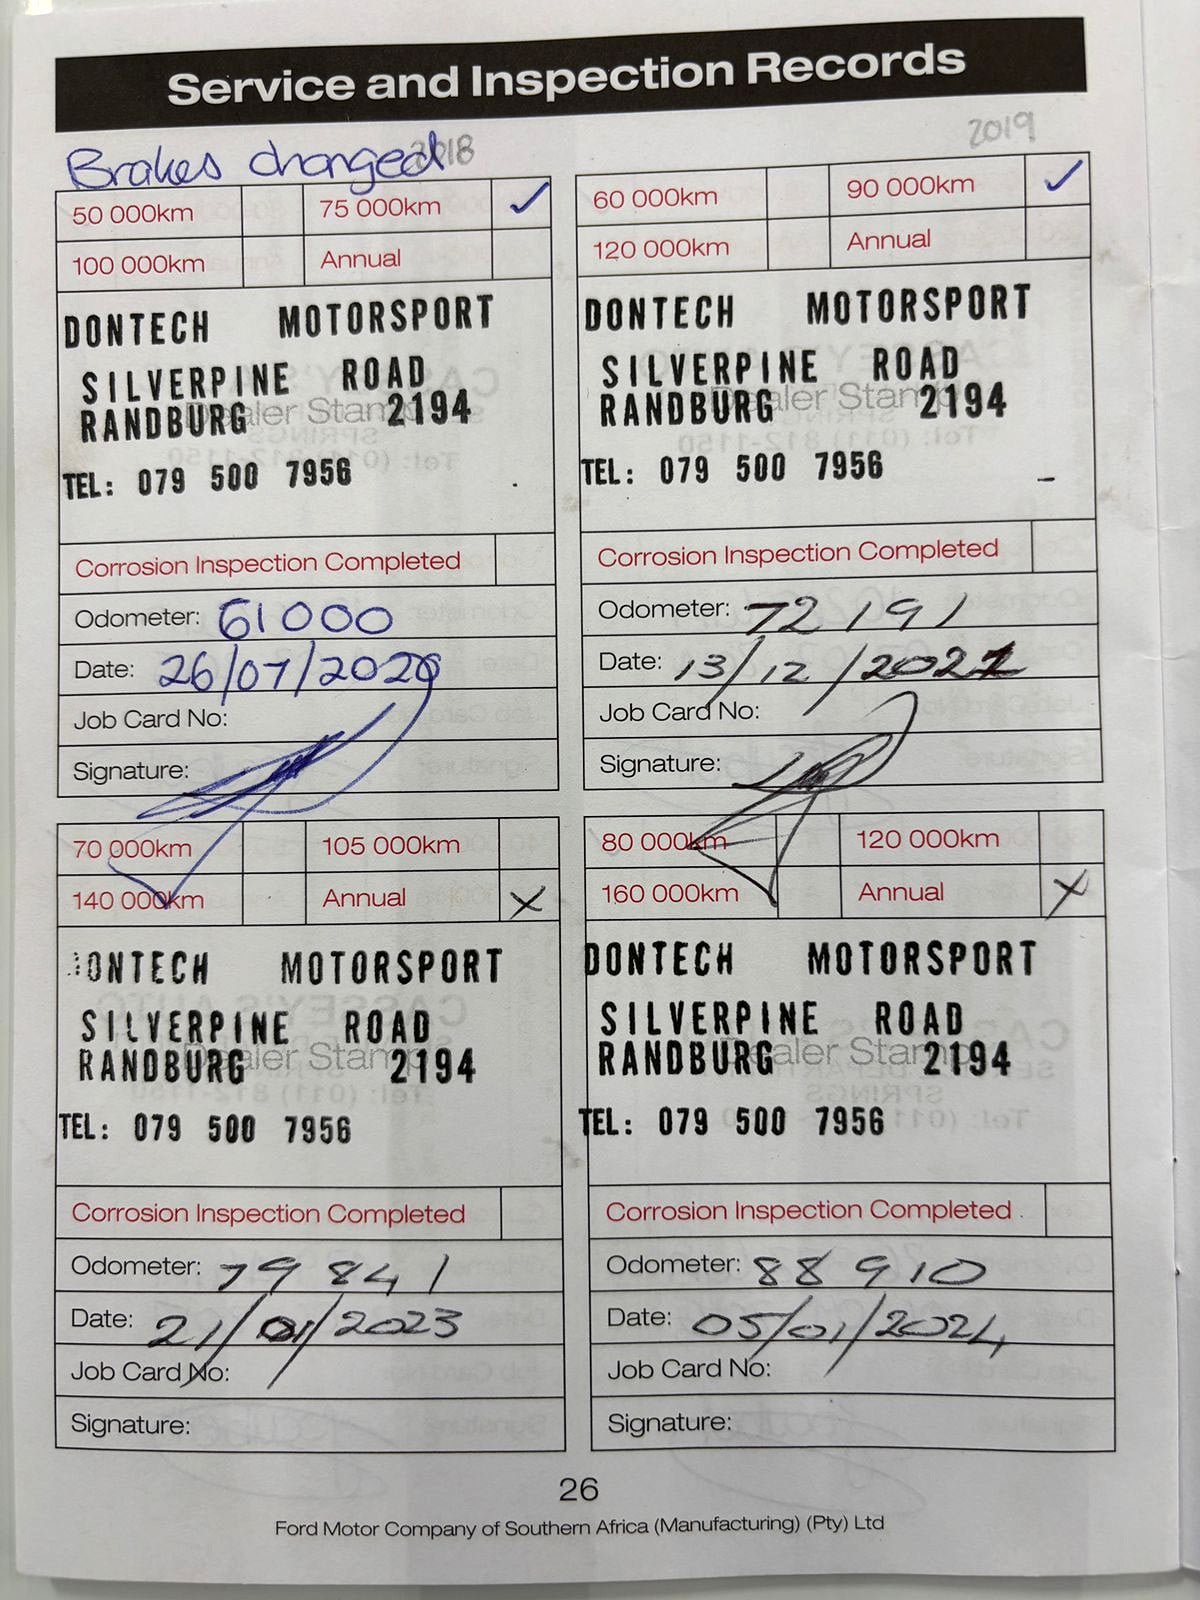 Service and Inspection Records
Brakes changed 2018
2019
50 000km 75 000km ✓
100 000km Annual
DONTECH MOTORSPORT
SILVERPINE ROAD
Dealer Stamp
RANDBURG 2194
TEL: 079 500 7956
Corrosion Inspection Completed
Odometer: 61000
Date: 26/07/2020
Job Card No:
Signature:
60 000km 90 000km ✓
120 000km Annual
DONTECH MOTORSPORT
SILVERPINE ROAD
Dealer Stamp
RANDBURG 2194
TEL: 079 500 7956
Corrosion Inspection Completed
Odometer: 72191
Date: 13/12/2021
Job Card No:
Signature:
70 000km 105 000km
140 000km Annual X
DONTECH MOTORSPORT
SILVERPINE ROAD
Dealer Stamp
RANDBURG 2194
TEL: 079 500 7956
Corrosion Inspection Completed
Odometer: 79841
Date: 21/01/2023
Job Card No:
Signature:
80 000km 120 000km
160 000km Annual X
DONTECH MOTORSPORT
SILVERPINE ROAD
Dealer Stamp
RANDBURG 2194
TEL: 079 500 7956
Corrosion Inspection Completed
Odometer: 88910
Date: 05/01/2024
Job Card No:
Signature:
26
Ford Motor Company of Southern Africa (Manufacturing) (Pty) Ltd